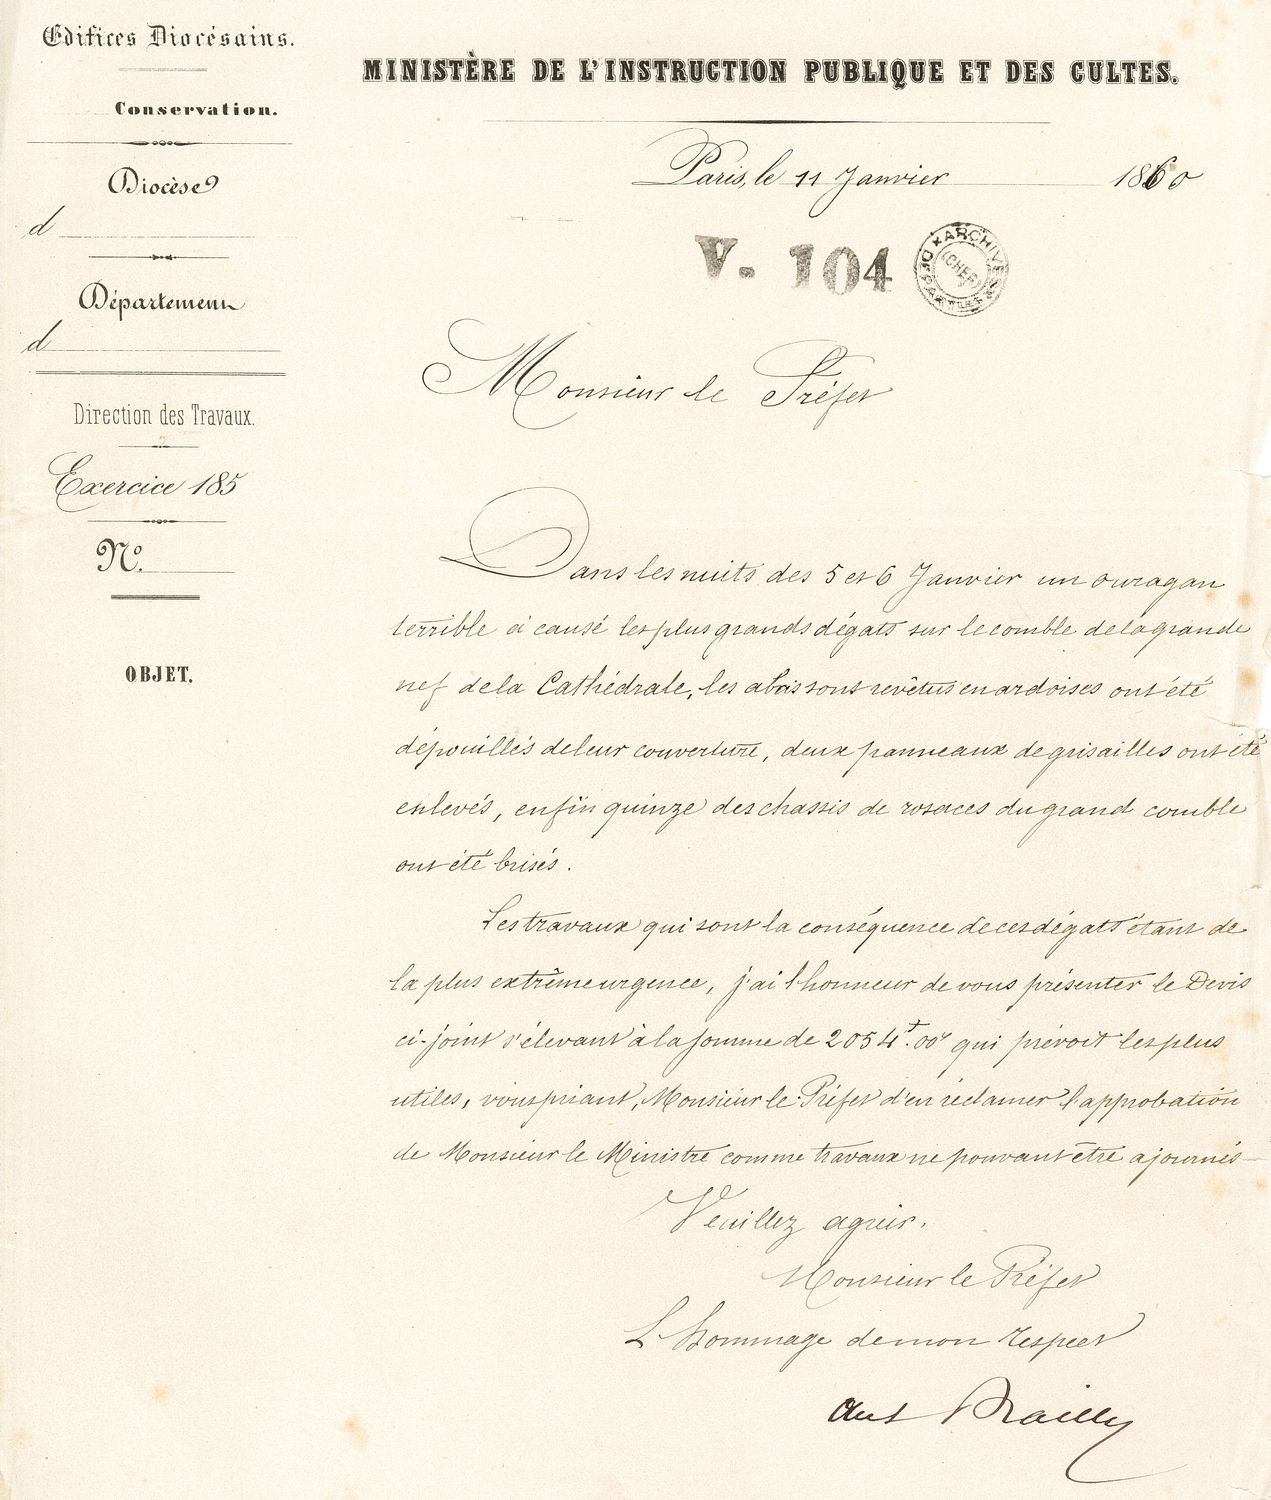 Edifices Diocésains.
Conservation.
Diocèse
d
Département
d
Direction des Travaux.
Exercice 185
N°.
OBJET.
MINISTÈRE DE L'INSTRUCTION PUBLIQUE ET DES CULTES.
Paris, le 11 Janvier 1860
V. 104
ARCHIVES DEPARTEMles (CHER)
Monsieur le Préfet
Dans les nuits des 5 et 6 Janvier un ouragan
terrible a causé les plus grands dégats sur le comble de la grande
nef de la Cathédrale, les abassons revêtus en ardoises ont été
dépouillés de leur couverture, deux panneaux de grisailles ont été
enlevés, enfin quinze des chassis de rosaces du grand comble
ont été brisés.
Les travaux qui sont la conséquence de ces dégats étant de
la plus extrême urgence, j'ai l'honneur de vous présenter le Devis
ci-joint s'élevant à la somme de 2054f.00c qui prévoit les plus
utiles, vous priant, Monsieur le Préfet d'en réclamer l'approbation
de Monsieur le Ministre comme travaux ne pouvant être ajournés
Veuillez agréer,
Monsieur le Préfet
L'hommage de mon respect
Ant Bailly